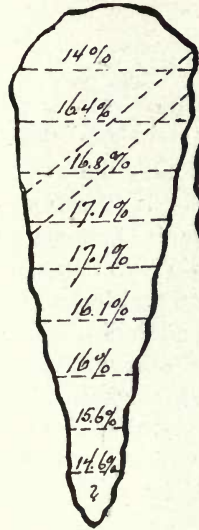 14%
16.4%
16.8%
17.1%
17.1%
16.1%
16%
15.6%
14.6%
?